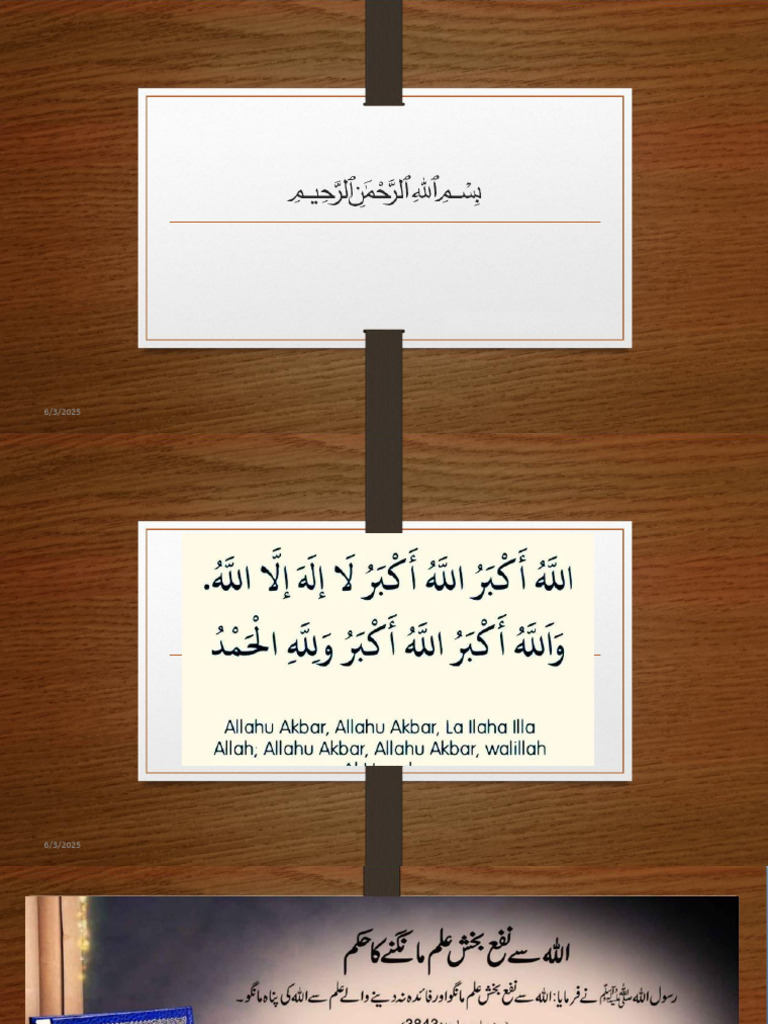 بِسْمِ ٱللَّهِ ٱلرَّحْمَٰنِ ٱلرَّحِيمِ
6/3/2025
اللَّهُ أَكْبَرُ اللَّهُ أَكْبَرُ لَا إِلَهَ إِلَّا اللَّهُ.
وَاَللَّهُ أَكْبَرُ اللَّهُ أَكْبَرُ وَلِلَّهِ الْحَمْدُ
Allahu Akbar, Allahu Akbar, La Ilaha Illa
Allah; Allahu Akbar, Allahu Akbar, walillah
6/3/2025
اللہ سے نفع بخش علم مانگنے کا حکم
رسول اللہ ﷺ نے فرمایا: اللہ سے نفع بخش علم مانگو اور فائدہ نہ دینے والے علم سے اللہ کی پناہ مانگو۔
3843